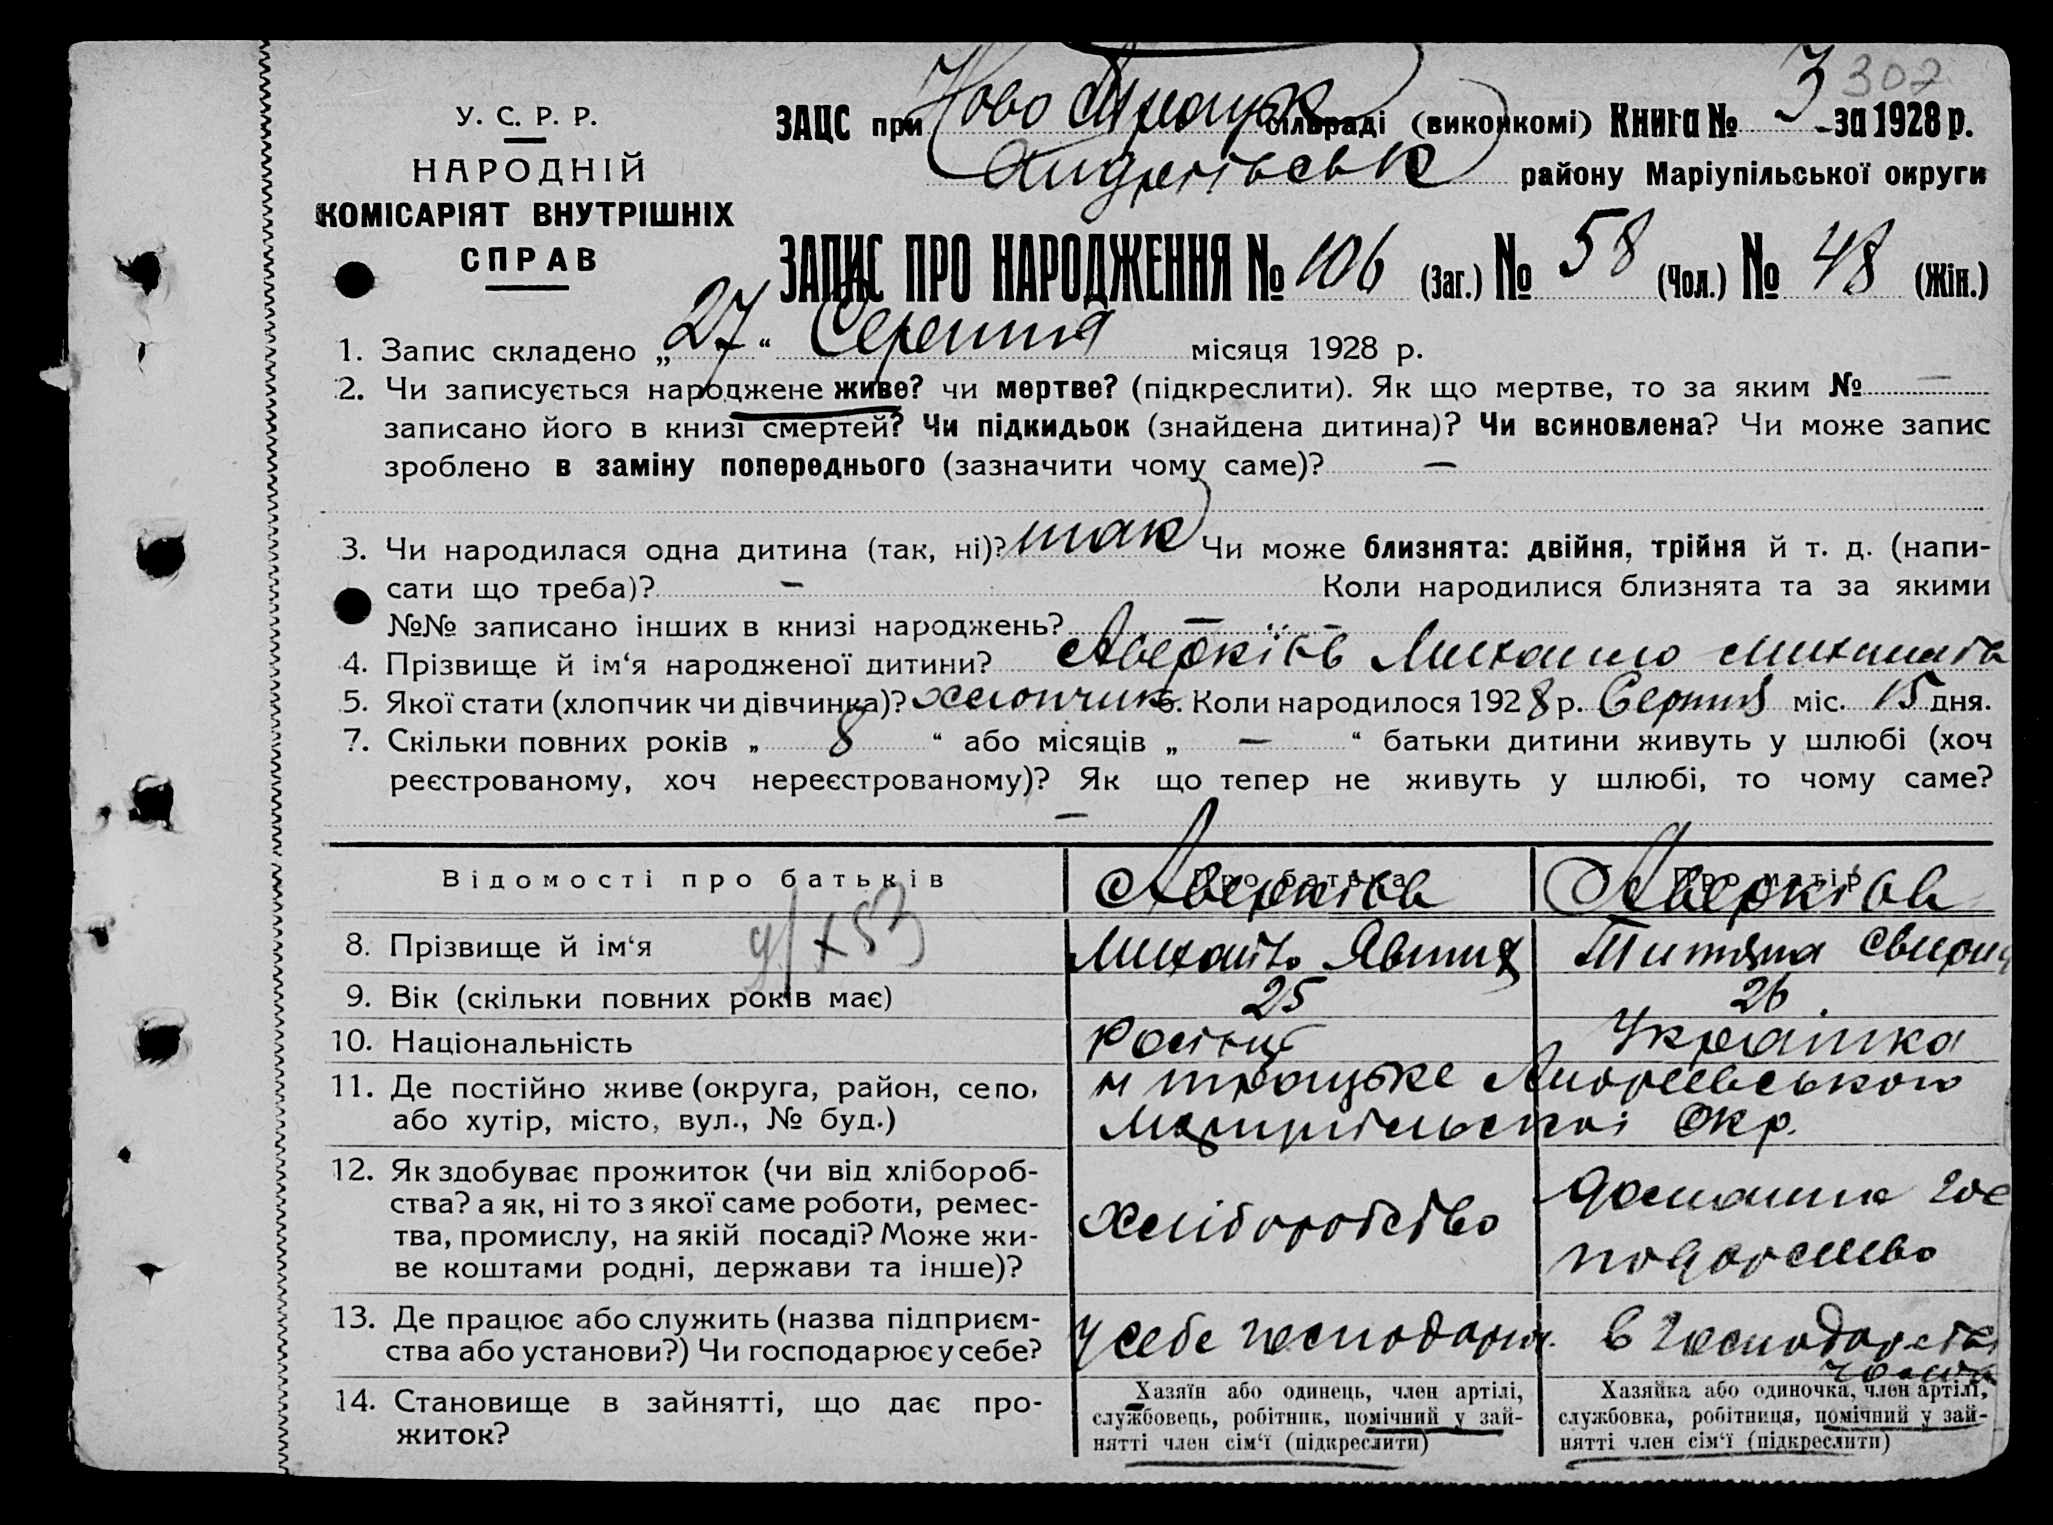 302
У. С. Р. Р.
НАРОДНІЙ
КОМІСАРІЯТ ВНУТРІШНІХ
СПРАВ
ЗАЦС при Ново сільраді (виконкомі) Книга № 3 за 1928 р.
району Маріупільської округи
ЗАПИС ПРО НАРОДЖЕННЯ № 106 (Заг.) № 58 (Чол.) № 48 (Жін.)
1. Запис складено „27“ Серпня місяця 1928 р.
2. Чи записується народжене живе? чи мертве? (підкреслити). Як що мертве, то за яким № —
записано його в книзі смертей? Чи підкидьок (знайдена дитина)? Чи всиновлена? Чи може запис
зроблено в заміну попереднього (зазначити чому саме)? —
3. Чи народилася одна дитина (так, ні)? так Чи може близнята: двійня, трійня й т. д. (напи-
сати що треба)? — Коли народилися близнята та за якими
№№ записано інших в книзі народжень? —
4. Прізвище й ім‘я народженої дитини? Аверків Михайло
5. Якої стати (хлопчик чи дівчинка)? хлопчик 6. Коли народилося 1928 р. Серпня міс. 15 дня.
7. Скільки повних років „ 8 “ або місяців „ — “ батьки дитини живуть у шлюбі (хоч
реєстрованому, хоч нереєстрованому)? Як що тепер не живуть у шлюбі, то чому саме?
—
Відомості про батьків Про батька Про матір
Аверків Аверків
8. Прізвище й ім‘я Михайло
9. Вік (скільки повних років має) 25 26
10. Національність Українка
11. Де постійно живе (округа, район, село,
або хутір, місто, вул., № буд.) Окр.
12. Як здобуває прожиток (чи від хлібороб-
ства? а як, ні то з якої саме роботи, ремес-
тва, промислу, на якій посаді? Може жи-
ве коштами родні, держави та інше)?
хліборобство
13. Де працює або служить (назва підприєм-
ства або установи?) Чи господарює у себе?
у себе
14. Становище в зайнятті, що дає про-
житок?
Хазяїн або одинець, член артілі,
службовець, робітник, помічний у зай-
нятті член сім‘ї (підкреслити)
Хазяйка або одиночка, член артілі,
службовка, робітниця, помічний у зай-
нятті член сім‘ї (підкреслити)